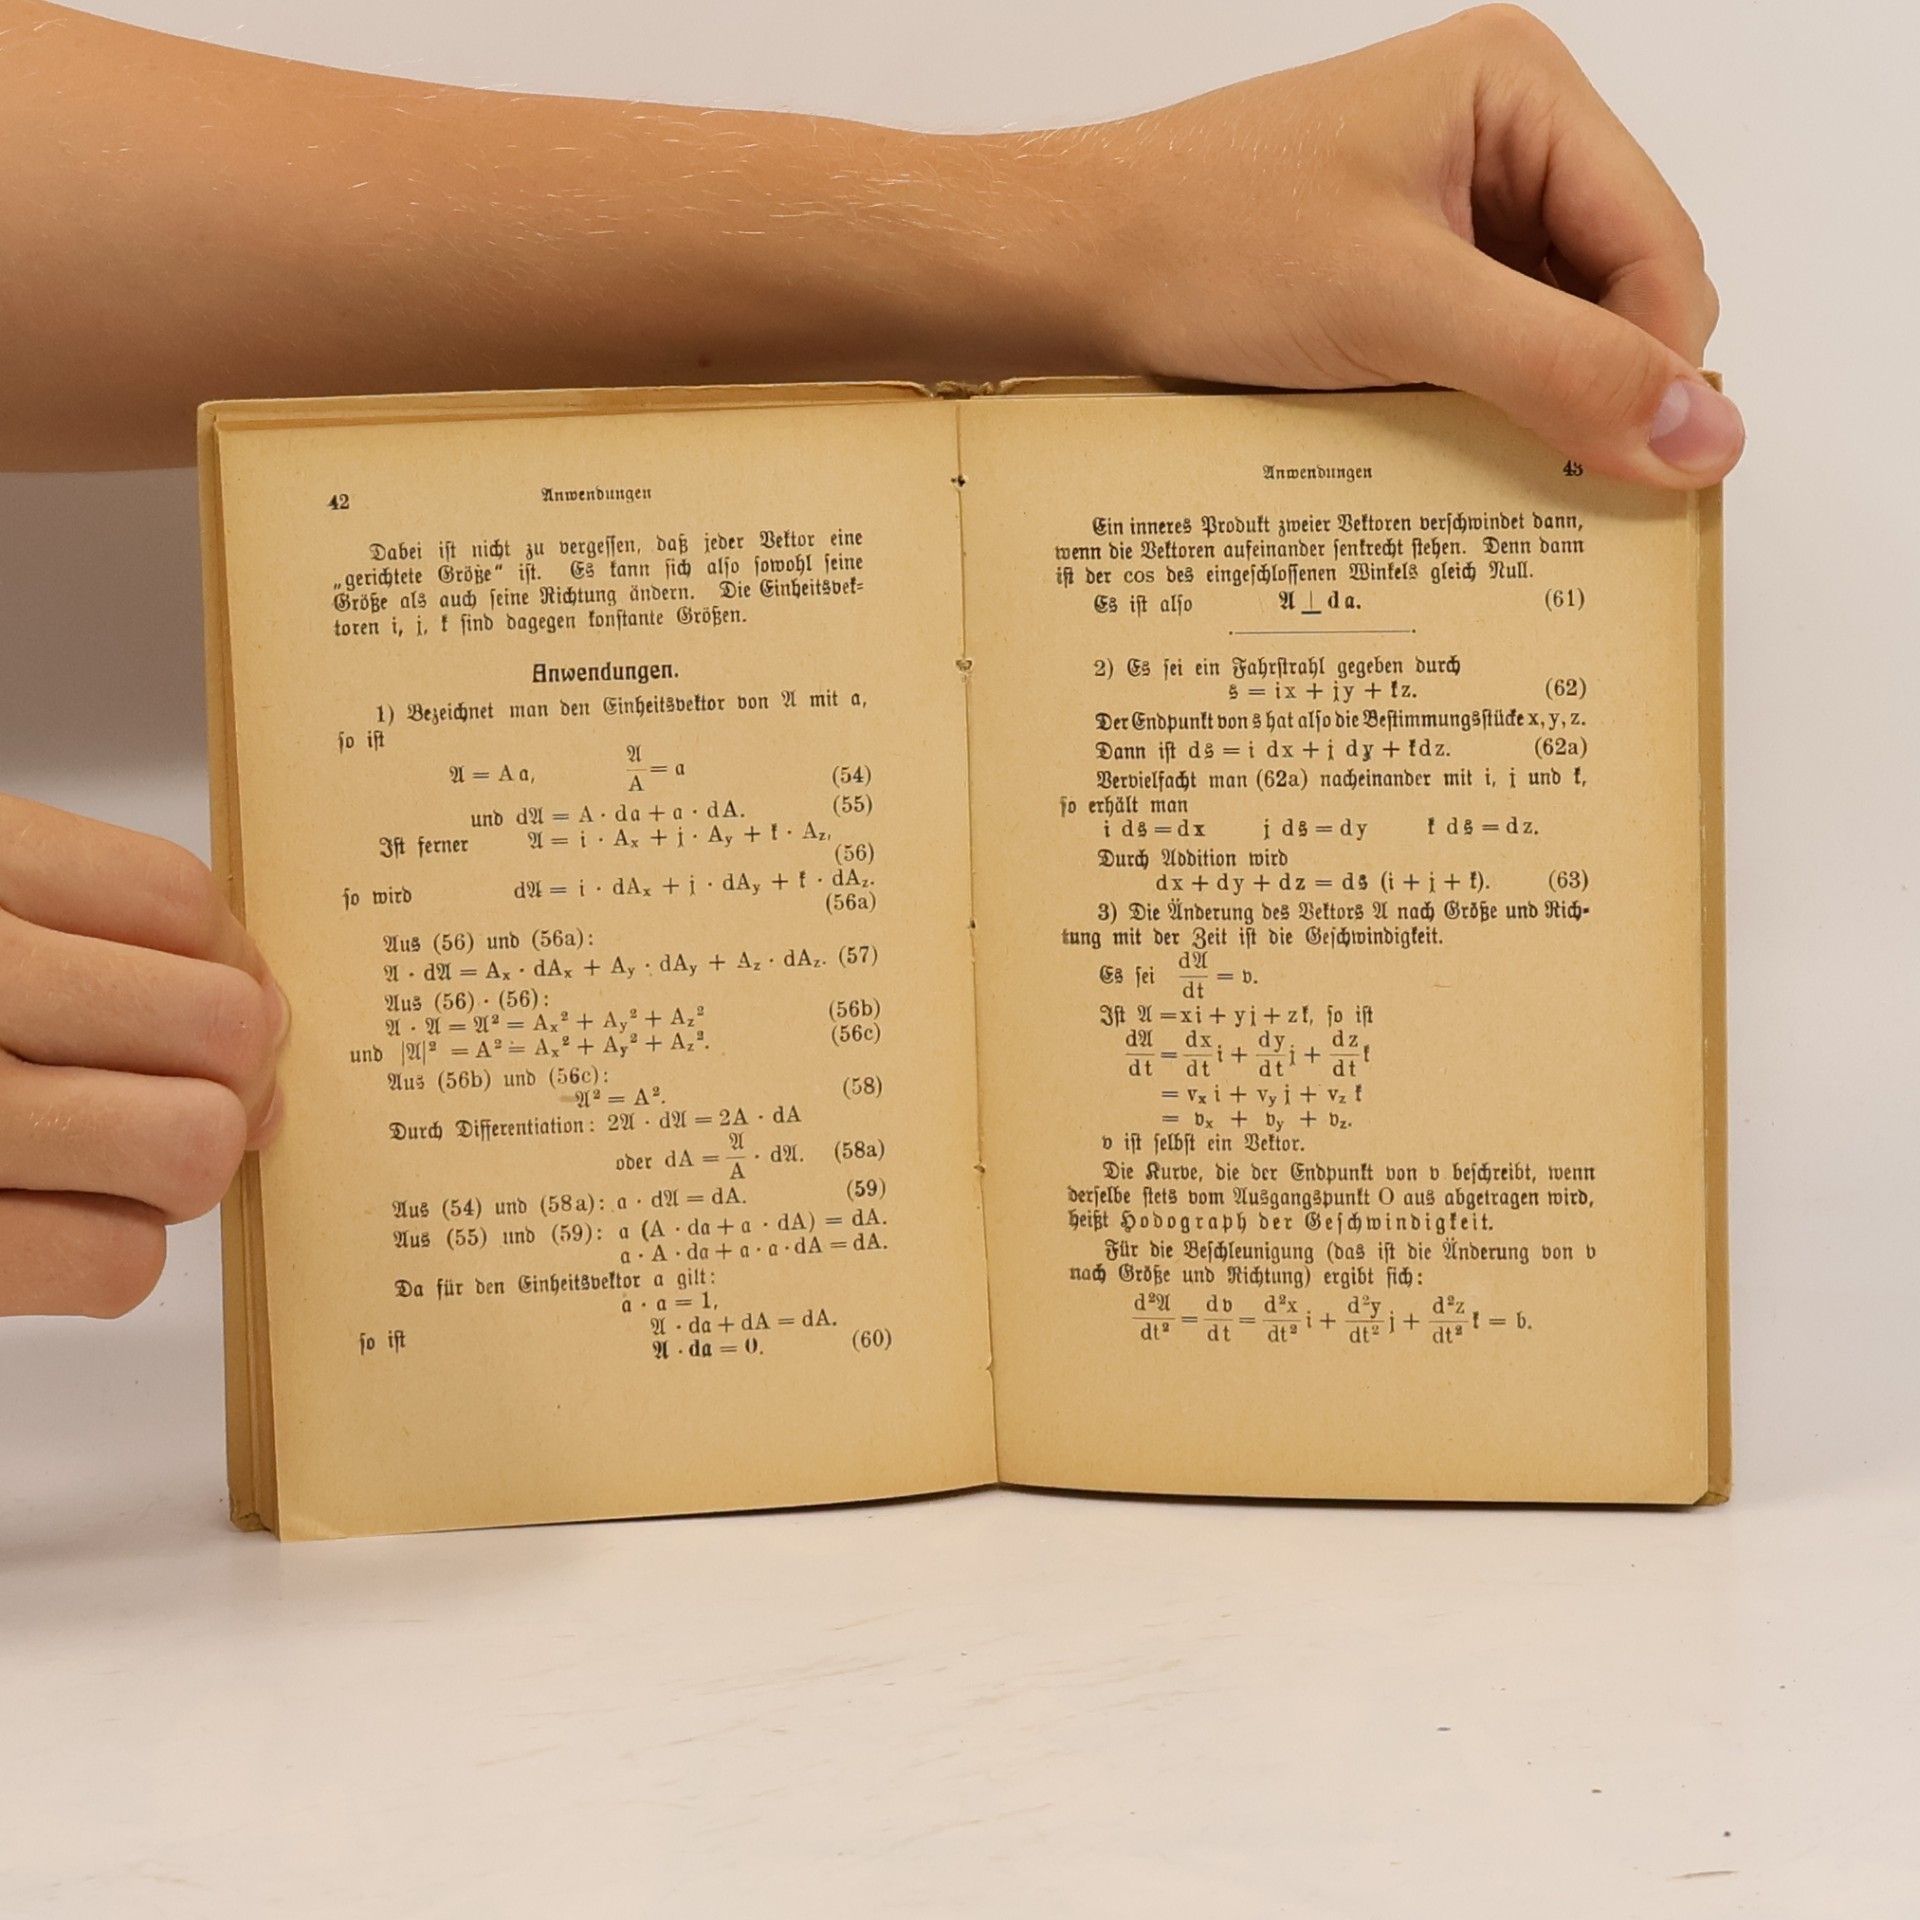 42 Anwendungen
Dabei ist nicht zu vergessen, daß jeder Vektor eine
„gerichtete Größe“ ist. Es kann sich also sowohl seine
Größe als auch seine Richtung ändern. Die Einheitsvek-
toren i, j, k sind dagegen konstante Größen.
Anwendungen.
1) Bezeichnet man den Einheitsvektor von 𝔄 mit a,
so ist
𝔄 = A a, 𝔄/A = a (54)
und d𝔄 = A · da + a · dA. (55)
Ist ferner 𝔄 = i · Aₓ + j · A_y + k · A_z, (56)
so wird d𝔄 = i · dAₓ + j · dA_y + k · dA_z. (56a)
Aus (56) und (56a):
𝔄 · d𝔄 = Aₓ · dAₓ + A_y · dA_y + A_z · dA_z. (57)
Aus (56) · (56):
𝔄 · 𝔄 = 𝔄² = Aₓ² + A_y² + A_z² (56b)
und |𝔄|² = A² = Aₓ² + A_y² + A_z². (56c)
Aus (56b) und (56c):
𝔄² = A². (58)
Durch Differentiation: 2𝔄 · d𝔄 = 2A · dA
oder dA = 𝔄/A · d𝔄. (58a)
Aus (54) und (58a): a · d𝔄 = dA. (59)
Aus (55) und (59): a (A · da + a · dA) = dA.
a · A · da + a · a · dA = dA.
Da für den Einheitsvektor a gilt:
a · a = 1,
𝔄 · da + dA = dA.
so ist 𝔄 · da = 0. (60)
Anwendungen 43
Ein inneres Produkt zweier Vektoren verschwindet dann,
wenn die Vektoren aufeinander senkrecht stehen. Denn dann
ist der cos des eingeschlossenen Winkels gleich Null.
Es ist also 𝔄 ⊥ da. (61)
2) Es sei ein Fahrstrahl gegeben durch
s = ix + jy + kz. (62)
Der Endpunkt von s hat also die Bestimmungsstücke x, y, z.
Dann ist ds = i dx + j dy + kdz. (62a)
Vervielfacht man (62a) nacheinander mit i, j und k,
so erhält man
i ds = dx j ds = dy k ds = dz.
Durch Addition wird
dx + dy + dz = ds (i + j + k). (63)
3) Die Änderung des Vektors 𝔄 nach Größe und Rich-
tung mit der Zeit ist die Geschwindigkeit.
Es sei d𝔄/dt = v.
Ist 𝔄 = xi + yj + zk, so ist
d𝔄/dt = dx/dt i + dy/dt j + dz/dt k
= vₓ i + v_y j + v_z k
= vₓ + v_y + v_z.
v ist selbst ein Vektor.
Die Kurve, die der Endpunkt von v beschreibt, wenn
derselbe stets vom Ausgangspunkt O aus abgetragen wird,
heißt Hodograph der Geschwindigkeit.
Für die Beschleunigung (das ist die Änderung von v
nach Größe und Richtung) ergibt sich:
d²𝔄/dt² = dv/dt = d²x/dt² i + d²y/dt² j + d²z/dt² k = b.